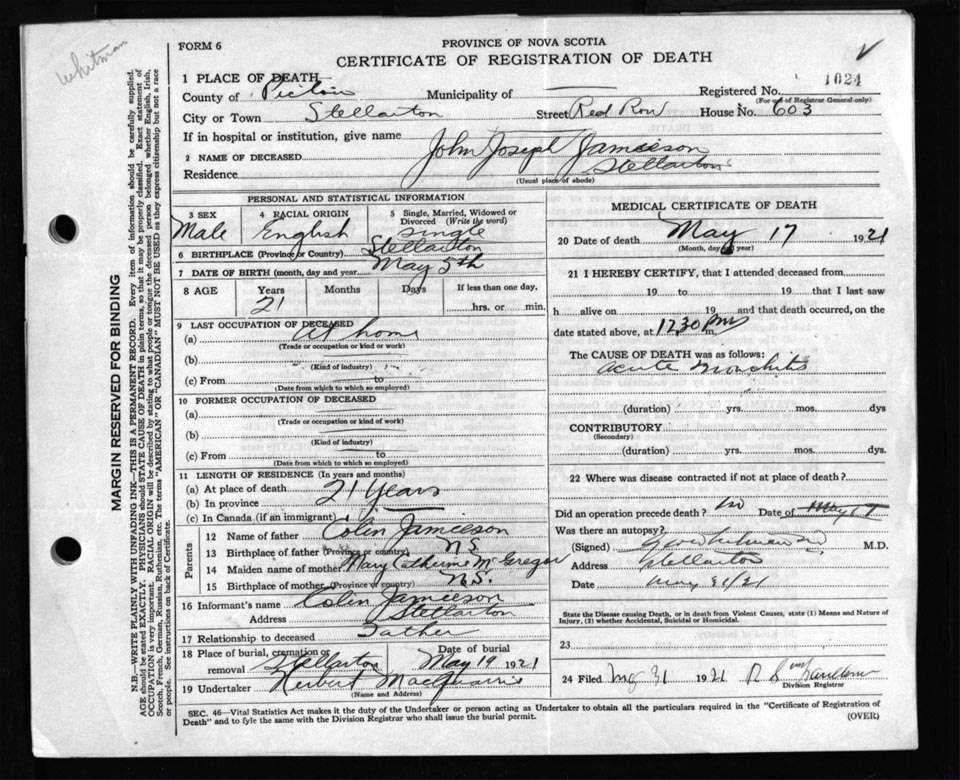 Whitman
FORM 6
PROVINCE OF NOVA SCOTIA
CERTIFICATE OF REGISTRATION OF DEATH
1024
1 PLACE OF DEATH—
County of Pictou Municipality of — Registered No.
(For use of Registrar General only)
City or Town Stellarton Street Red Row House No. 603
If in hospital or institution, give name
2 NAME OF DECEASED John Joseph Jamieson
Residence Stellarton
(Usual place of abode)
MARGIN RESERVED FOR BINDING
N.B.—WRITE PLAINLY WITH UNFADING INK—THIS IS A PERMANENT RECORD. Every item of information should be carefully supplied.
AGE should be stated EXACTLY. PHYSICIANS should STATE CAUSE OF DEATH in plain terms, so that it may be properly classified. Exact statement of
OCCUPATION is very important. RACIAL ORIGIN will be described by stating to what people or tongue the deceased person belonged whether English, Irish,
Scotch, French, German, Russian, Ruthenian, etc. The terms "AMERICAN" OR "CANADIAN" MUST NOT BE USED as they express citizenship but not a race
or people. See instructions on back of Certificate.
PERSONAL AND STATISTICAL INFORMATION
3 SEX 4 RACIAL ORIGIN 5 Single, Married, Widowed or
Divorced (Write the word)
Male English Single
6 BIRTHPLACE (Province or Country) Stellarton
7 DATE OF BIRTH (month, day and year) May 5th
8 AGE Years Months Days If less than one day,
21 hrs. or min.
9 LAST OCCUPATION OF DECEASED
(a) At home
(Trade or occupation or kind of work)
(b)
(Kind of industry)
(c) From to
(Date from which to which so employed)
10 FORMER OCCUPATION OF DECEASED
(a)
(Trade or occupation or kind of work)
(b)
(Kind of industry)
(c) From to
(Date from which to which so employed)
11 LENGTH OF RESIDENCE (In years and months)
(a) At place of death 21 Years
(b) In province
(c) In Canada (if an immigrant)
Parents
12 Name of father Colin Jamieson
13 Birthplace of father (Province or country) N.S.
14 Maiden name of mother Mary Catherine McGregor
15 Birthplace of mother (Province or country) N.S.
16 Informant's name Colin Jamieson
Address Stellarton
17 Relationship to deceased Father
18 Place of burial, cremation or Date of burial
removal Stellarton May 19 1921
19 Undertaker Herbert MacQuarrie
(Name and Address)
MEDICAL CERTIFICATE OF DEATH
20 Date of death May 17 1921
(Month, day and year)
21 I HEREBY CERTIFY, that I attended deceased from
19 to 19 that I last saw
h alive on 19 and that death occurred, on the
date stated above, at 12.30 PM m.
The CAUSE OF DEATH was as follows:
Acute Bronchitis
(duration) yrs. mos. dys
CONTRIBUTORY
(Secondary)
(duration) yrs. mos. dys.
22 Where was disease contracted if not at place of death?
Did an operation precede death? no Date of May 17
Was there an autopsy?
(Signed) M.D.
Address Stellarton
Date May 31/21
State the Disease causing Death, or in death from Violent Causes, state (1) Means and Nature of
Injury, (2) whether Accidental, Suicidal or Homicidal.
23
24 Filed 31 1921
Division Registrar
SEC. 46—Vital Statistics Act makes it the duty of the Undertaker or person acting as Undertaker to obtain all the particulars required in the "Certificate of Registration of
Death" and to fyle the same with the Division Registrar who shall issue the burial permit.
(OVER)